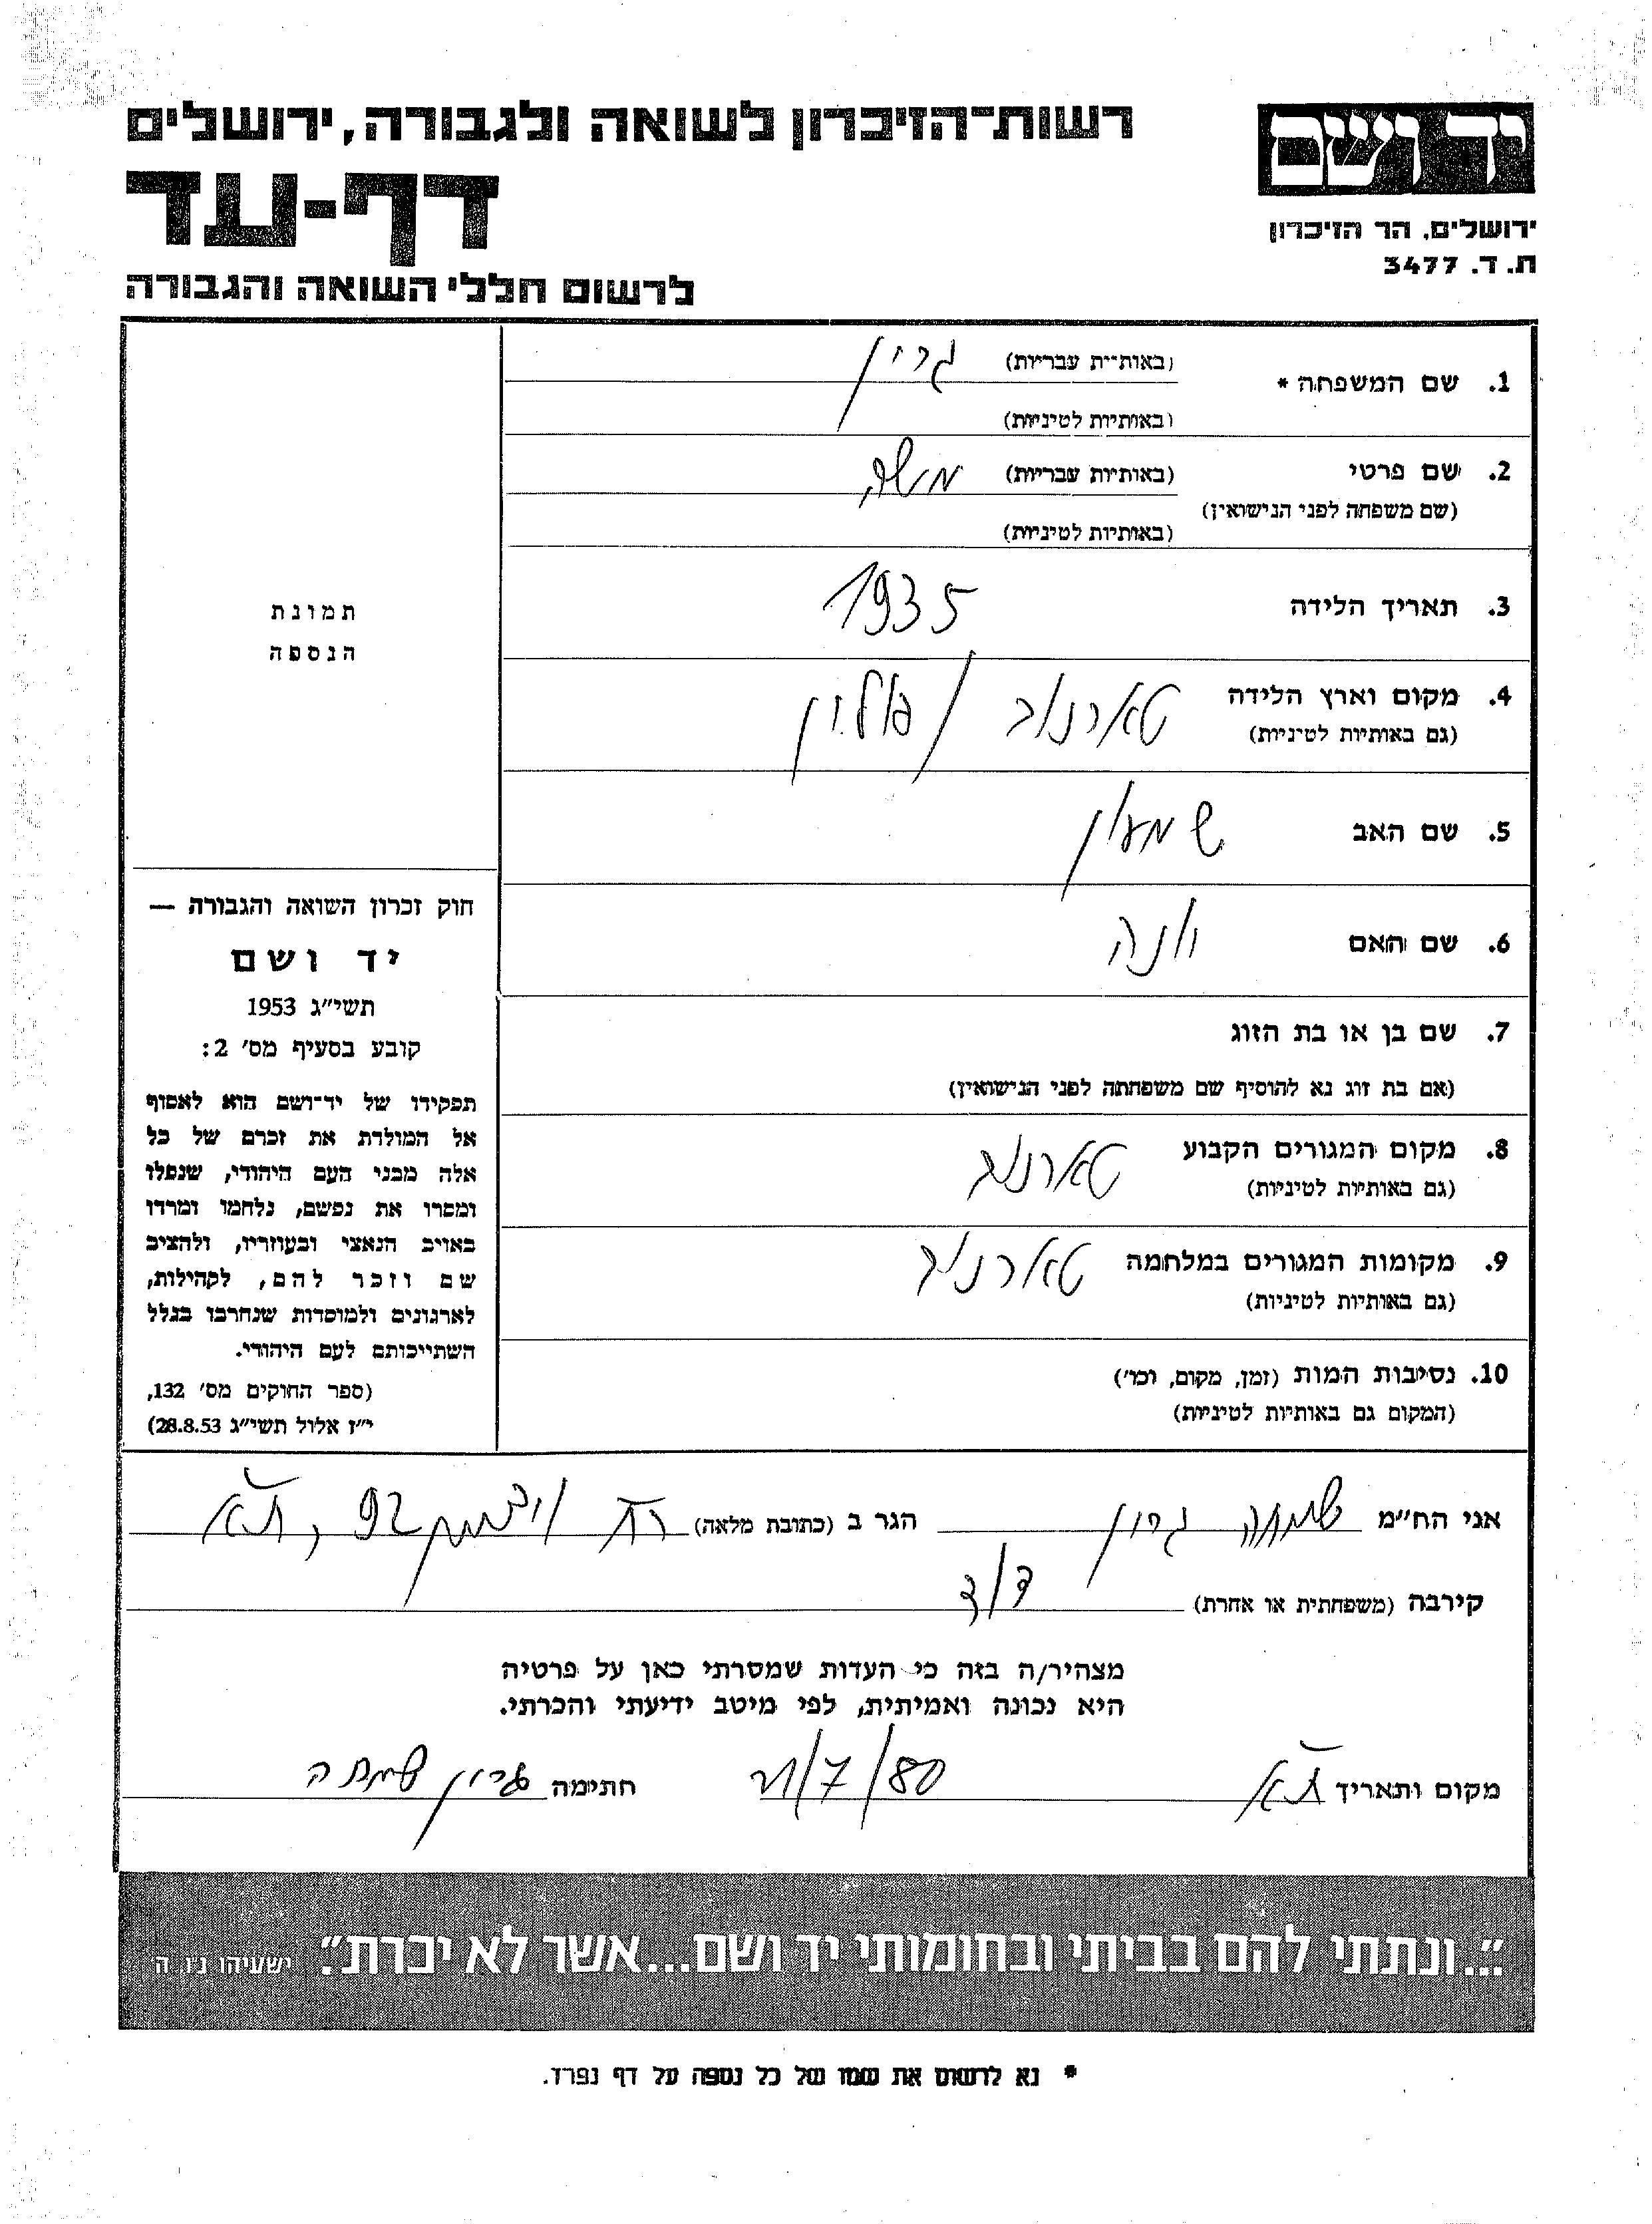 רשות־הזיכרון לשואה ולגבורה, ירושלים
יד ושם
דף-עד
ירושלים, הר הזיכרון
ת. ד. 3477
לרשום חללי השואה והגבורה
1. שם המשפחה *
(באותיות עבריות) גרין
(באותיות לטיניות)
2. שם פרטי
(שם משפחה לפני הנישואין)
(באותיות עבריות) משה
(באותיות לטיניות)
3. תאריך הלידה 1935
4. מקום וארץ הלידה טארנוב / פולין
(גם באותיות לטיניות)
5. שם האב שמעון
6. שם האם
7. שם בן או בת הזוג
(אם בת זוג נא להוסיף שם משפחתה לפני הנישואין)
8. מקום המגורים הקבוע טארנוב
(גם באותיות לטיניות)
9. מקומות המגורים במלחמה טארנוב
(גם באותיות לטיניות)
10. נסיבות המות (זמן, מקום, וכו')
(המקום גם באותיות לטיניות)
תמונת
הנספה
חוק זכרון השואה והגבורה —
יד ושם
תשי״ג 1953
קובע בסעיף מס' 2:
תפקידו של יד־ושם הוא לאסוף
אל המולדת את זכרם של כל
אלה מבני העם היהודי, שנפלו
ומסרו את נפשם, נלחמו ומרדו
באויב הנאצי ובעוזריו, ולהציב
שם וזכר להם, לקהילות,
לארגונים ולמוסדות שנחרבו בגלל
השתייכותם לעם היהודי.
(ספר החוקים מס' 132,
י״ז אלול תשי״ג 28.8.53)
אני הח״מ שמחה גרין הגר ב (כתובת מלאה) רח , ת״א
קירבה (משפחתית או אחרת) דוד
מצהיר/ה בזה כי העדות שמסרתי כאן על פרטיה
היא נכונה ואמיתית, לפי מיטב ידיעתי והכרתי.
מקום ותאריך ת״א 21/7/80 חתימה גרין שמחה
"...ונתתי להם בביתי ובחומותי יד ושם...אשר לא יכרת". ישעיהו נ״ו ה'
* נא לרשום את שמו של כל נספה על דף נפרד.